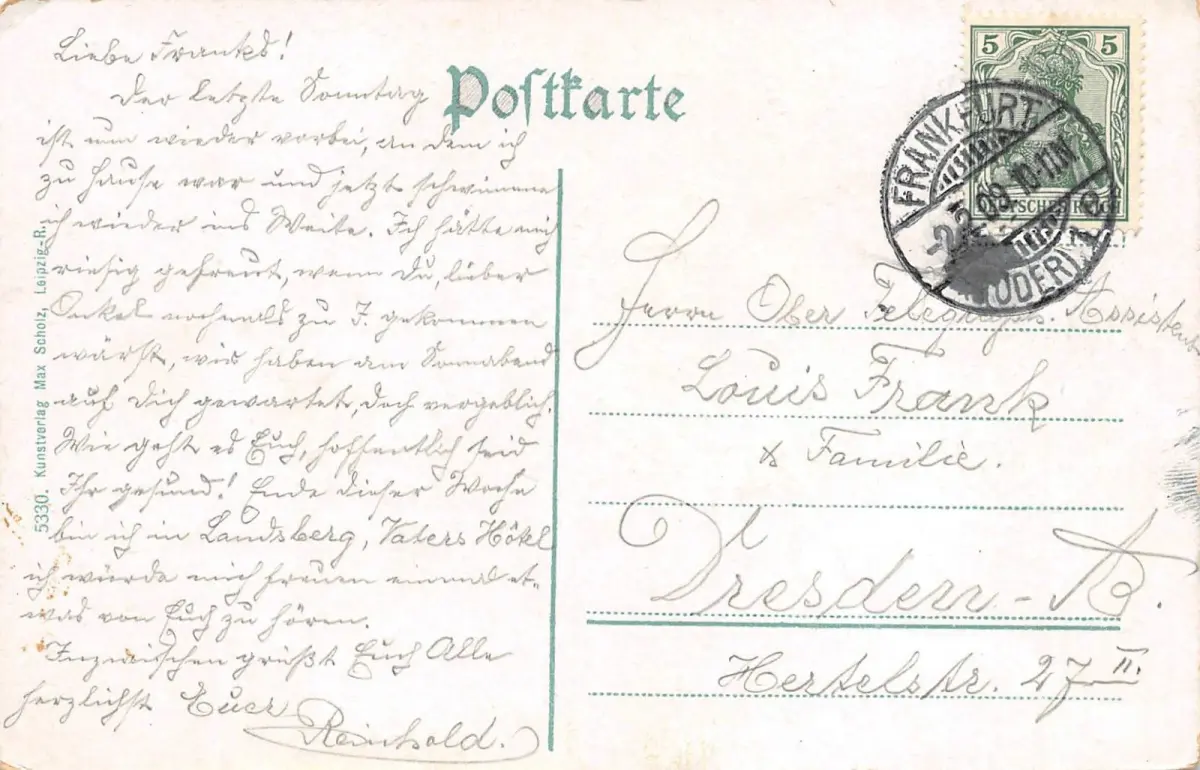 Liebe Franks!
Der letzte Sonntag
ist nun wieder vorbei, an dem ich
zu Hause war und jetzt schwimme
ich wieder ins Weite. Ich hätte mich
riesig gefreut, wenn Du, lieber
Onkel nochmals zu J. gekommen
wärst, wir haben am Sonnabend
auf Dich gewartet, doch vergeblich.
Wie geht es Euch, hoffentlich seid
Ihr gesund! Ende dieser Woche
bin ich in Landsberg, Vaters Hôtel
ich würde mich freuen einmal et-
was von Euch zu hören.
Inzwischen grüßt Euch Alle
herzlichst Euer
Reinhold.
5330. Kunstverlag Max Scholz, Leipzig-R.
Postkarte
5 5
DEUTSCHES REICH
FRANKFURT
08. 10-11N
(ODER)
Herrn Ober Telegraphen. Assistent
Louis Frank
& Familie.
Dresden-A.
Hertelstr. 27 II.